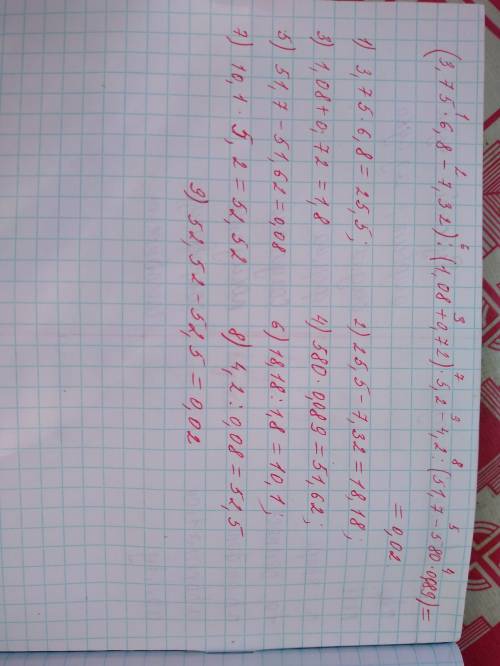 (3,75·6,8-7,32):(1,08+0,72)·5,2-4,2:(51,7-580·0,089)=
=0,02
1) 3,75·6,8=25,5;
2) 25,5-7,32=18,18;
3) 1,08+0,72=1,8
4) 580·0,089=51,62;
5) 51,7-51,62=0,08
6) 18,18:1,8=10,1;
7) 10,1·5,2=52,52
8) 4,2:0,08=52,5
9) 52,52-52,5=0,02